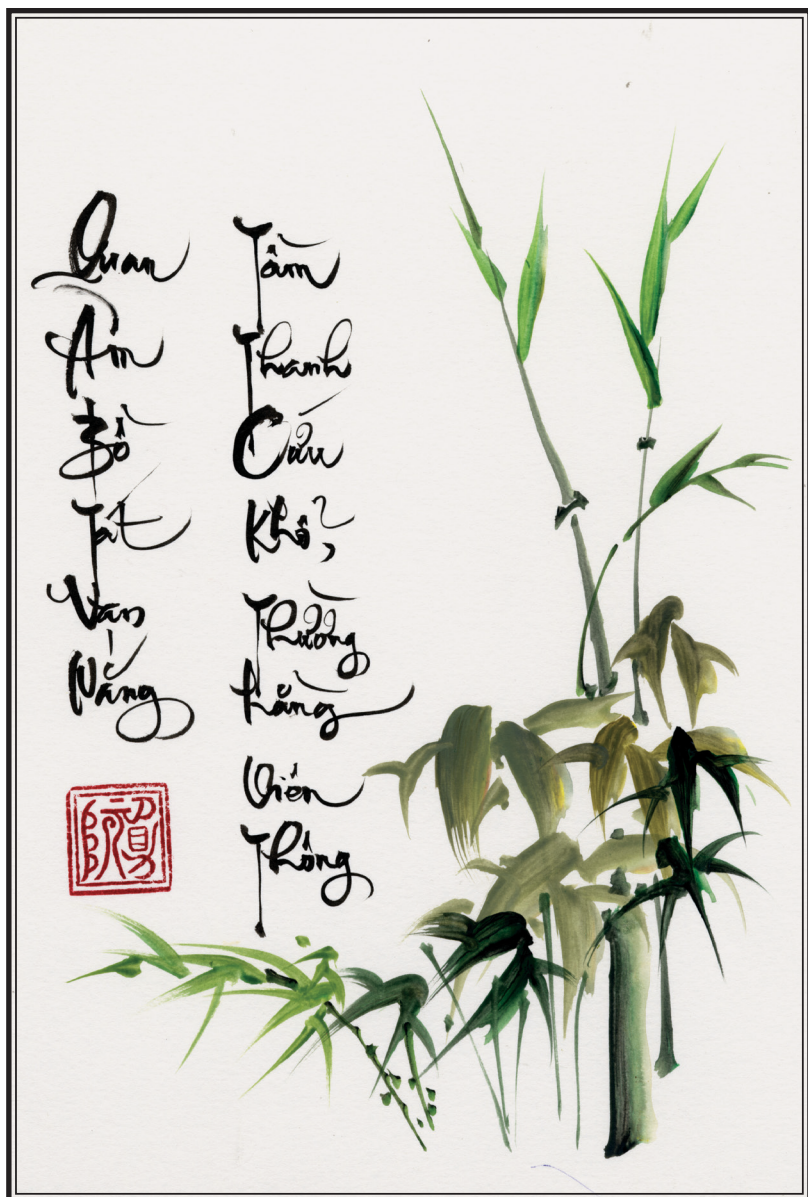 Quan
Âm
Bồ
Tát
Vạn
Năng
Tầm
Thanh
Cứu
Khổ,
Thường
hằng
Viên
Thông